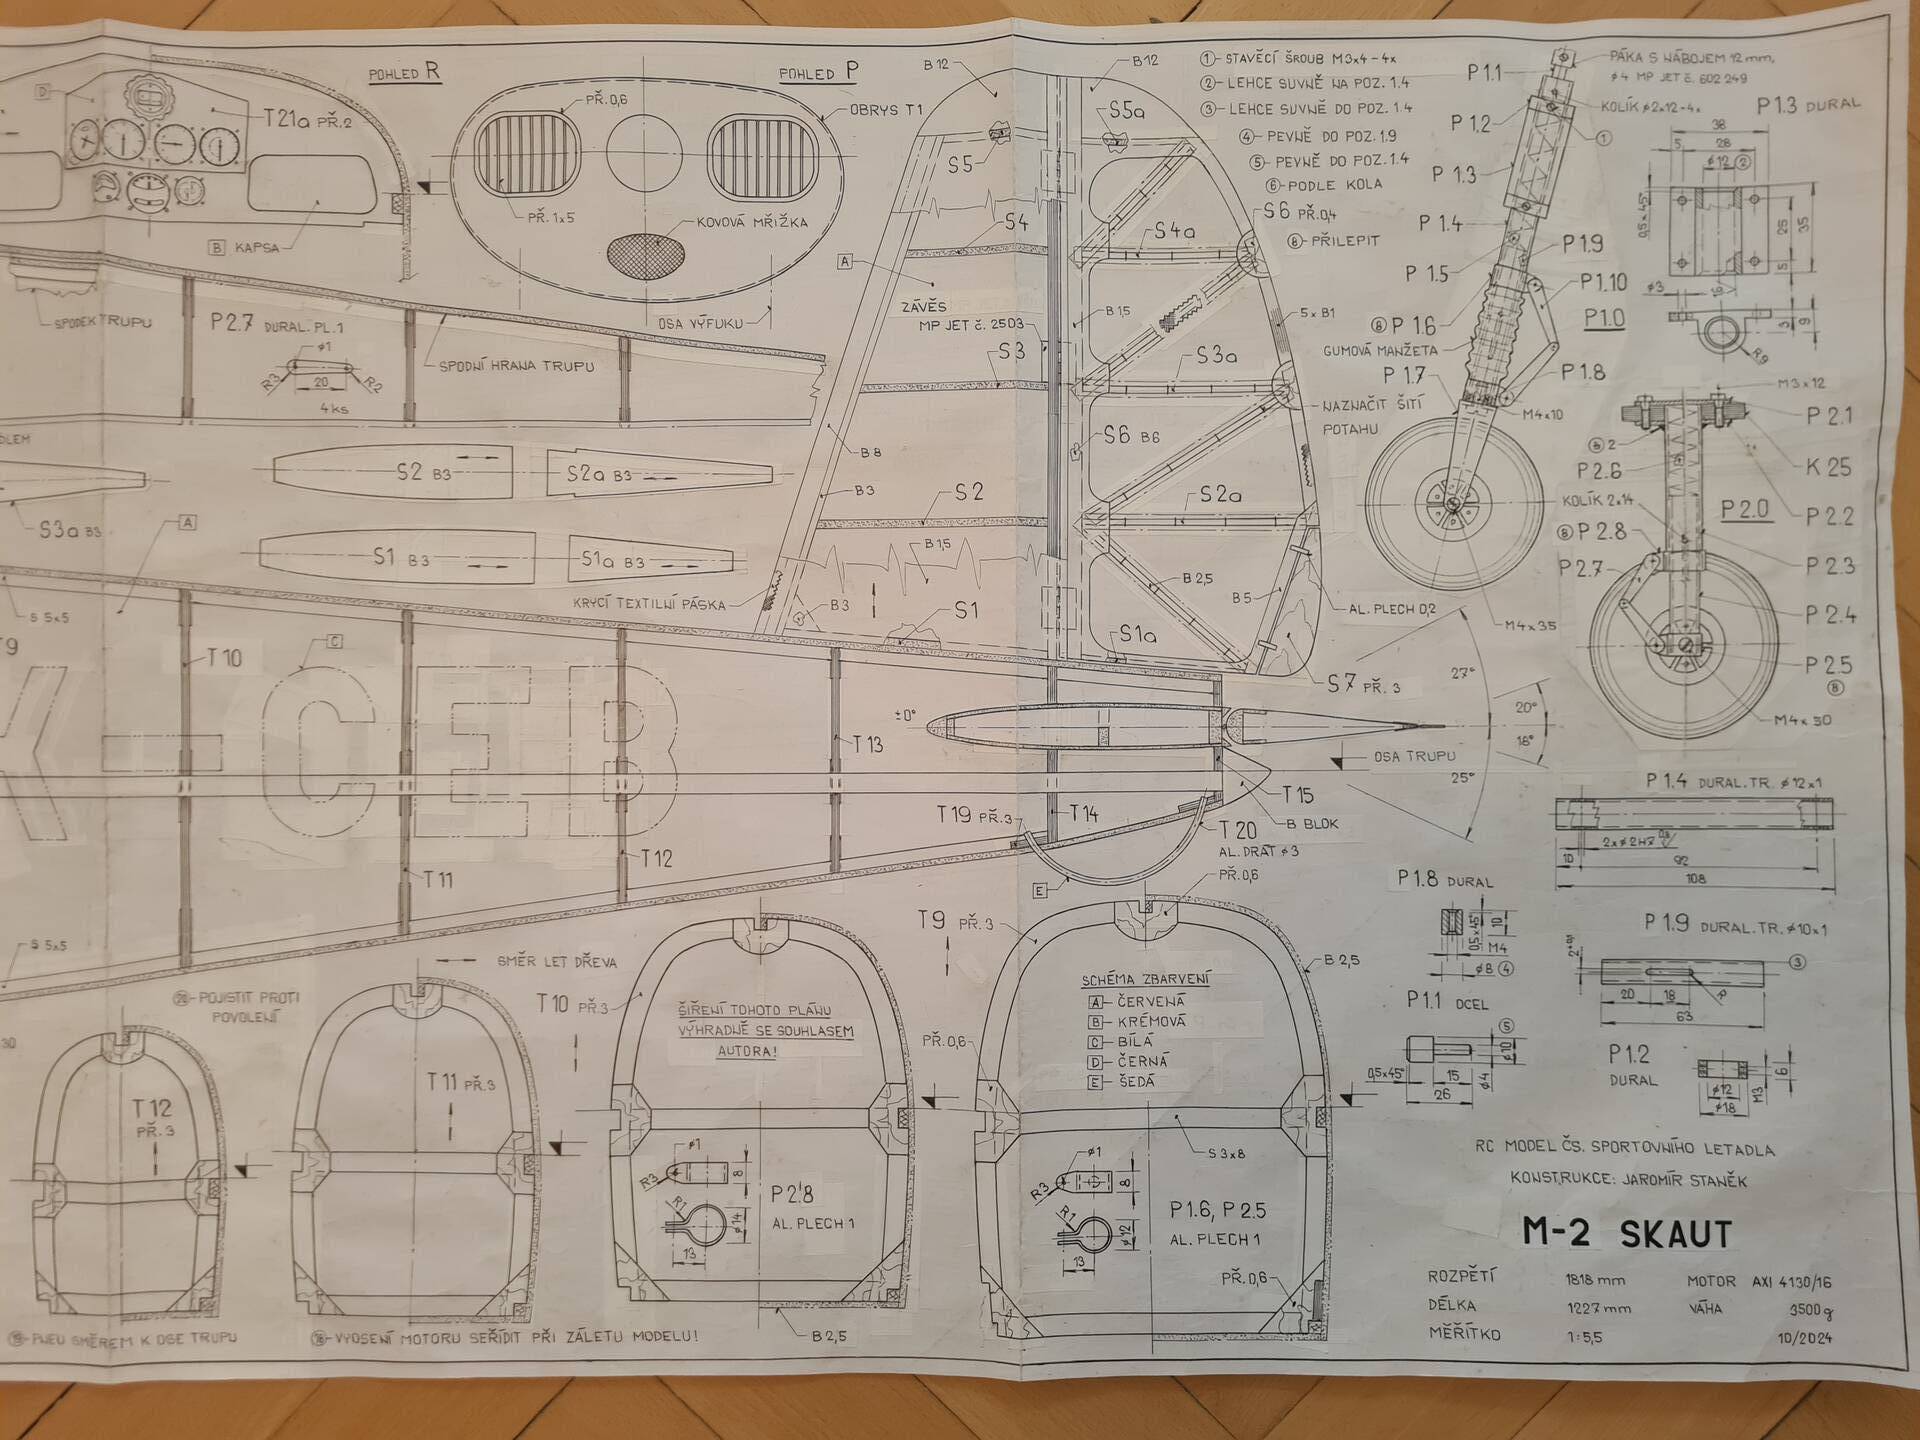 POHLED R
D
T21a PŘ.2
B KAPSA
POHLED P
PŘ.0,6
OBRYS T1
PŘ.1x5
KOVOVÁ MŘÍŽKA
OSA VÝFUKU
SPODEK TRUPU
P2.7 DURAL.PL.1
ø1
R3
20
R2
4ks
SPODNÍ HRANA TRUPU
S2 B3
S2a B3
S3a B3
A
S1 B3
S1a B3
B12
B12
S5
S5a
S4
S4a
S6 PŘ.0,4
A
ZÁVĚS
MP JET č. 2503
B1,5
5xB1
S3
S3a
NAZNAČIT ŠITÍ
POTAHU
S6 B6
B8
B3
S2
S2a
B1,5
B2,5
B5
KRYCÍ TEXTILNÍ PÁSKA
B3
S1
S1a
AL. PLECH 0,2
S7 PŘ.3
① STAVĚCÍ ŠROUB M3x4-4x
② LEHCE SUVNĚ NA POZ. 1.4
③ LEHCE SUVNĚ DO POZ. 1.4
④ PEVNĚ DO POZ. 1.9
⑤ PEVNĚ DO POZ. 1.4
⑥ PODLE KOLA
⑧ PŘILEPIT
P1.1
PÁKA S NÁBOJEM 12mm,
ø4 MP JET č. 602 249
KOLÍK ø2x12-4x
P1.2
①
P1.3
P1.4
P1.5
P1.9
P1.10
⑧ P1.6
P1.0
GUMOVÁ MANŽETA
P1.7
P1.8
M4x10
M4x35
P1.3 DURAL
38
5
28
ø12 ②
0,5x45°
25
35
5
ø3
3
9
R9
M3x12
P2.1
⑥ 2
K25
P2.6
KOLÍK 2x14
P2.0
P2.2
⑧ P2.8
P2.7
P2.3
P2.4
P2.5
⑧
M4x30
S 5x5
T9
T10
C
OK-CEB
T11
T12
T13
±0°
27°
20°
18°
25°
OSA TRUPU
T15
B BLOK
T14
T19 PŘ.3
T20
AL.DRÁT ø3
E
PŘ.0,6
S 5x5
P1.4 DURAL.TR. ø12x1
10
92
108
P1.8 DURAL
0,5x45°
10
M4
ø8 ④
P1.9 DURAL.TR. ø10x1
③
20
18
63
P1.1 OCEL
⑤
ø10
ø4
0,5x45°
15
26
P1.2
DURAL
ø12
ø18
M3
6
SMĚR LET DŘEVA
⑳ POJISTIT PROTI
POVOLENÍ
T12
PŘ.3
T11 PŘ.3
T10 PŘ.3
ŠÍŘENÍ TOHOTO PLÁNU
VÝHRADNĚ SE SOUHLASEM
AUTORA!
ø1
R3
8
R1
ø14
13
P2.8
AL. PLECH 1
B2,5
T9 PŘ.3
B2,5
SCHÉMA ZBARVENÍ
A - ČERVENÁ
B - KRÉMOVÁ
C - BÍLÁ
D - ČERNÁ
E - ŠEDÁ
PŘ.0,6
S 3x8
ø1
R3
8
R1
ø12
13
P1.6, P2.5
AL. PLECH 1
PŘ.0,6
SMĚREM K OSE TRUPU
⑱ VYOSENÍ MOTORU SEŘÍDIT PŘI ZÁLETU MODELU!
RC MODEL ČS. SPORTOVNÍHO LETADLA
KONSTRUKCE: JAROMÍR STANĚK
M-2 SKAUT
ROZPĚTÍ 1818 mm MOTOR AXI 4130/16
DÉLKA 1227 mm VÁHA 3500 g
MĚŘÍTKO 1:5,5 10/2024